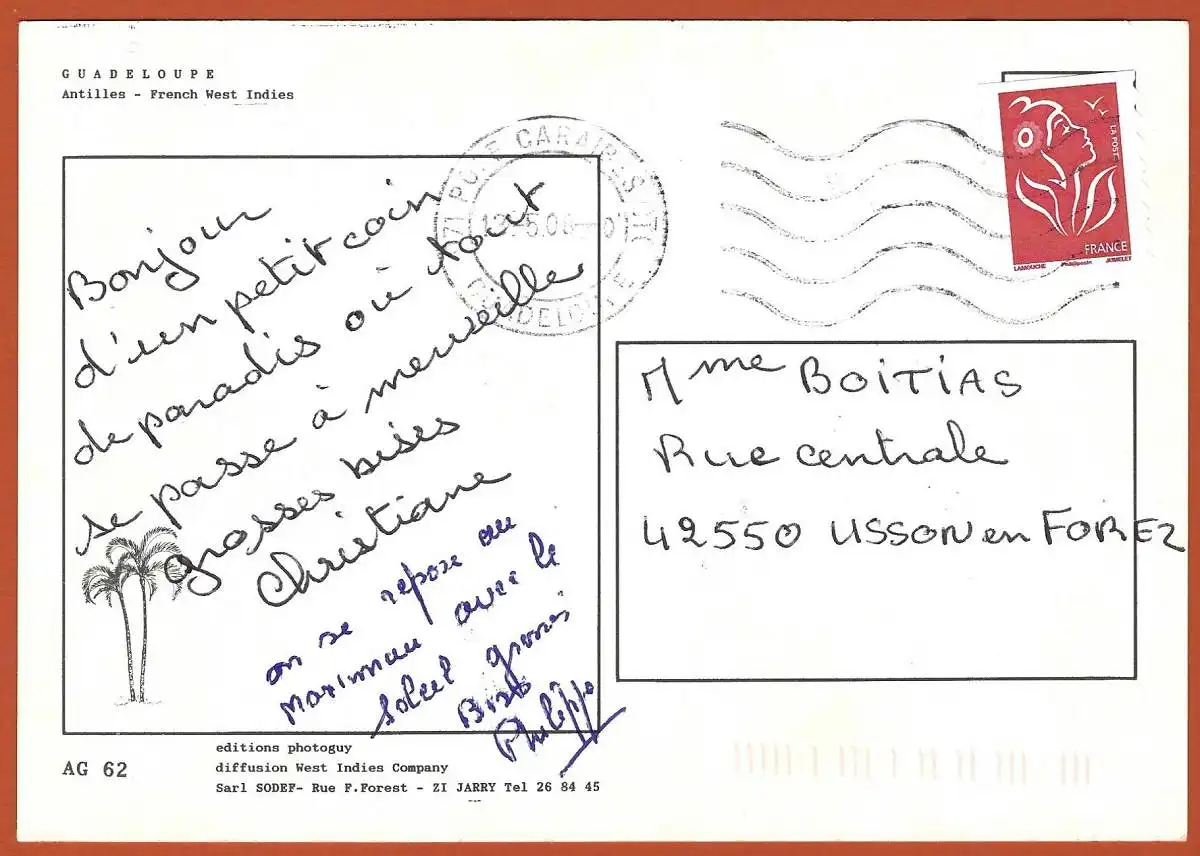 GUADELOUPE
Antilles - French West Indies
CARAIBES
12.5.06
LA POSTE
FRANCE
LAMOUCHE Phil@poste JUMELET
Bonjour
d'un petit coin
de paradis où tout
se passe à merveille
grosses bises
Christiane
on se repose au
maximum avec le
soleil grosses
Bises
Philippe
Mme BOITIAS
Rue centrale
42550 USSON en FOREZ
editions photoguy
AG 62
diffusion West Indies Company
Sarl SODEF- Rue F.Forest - ZI JARRY Tel 26 84 45